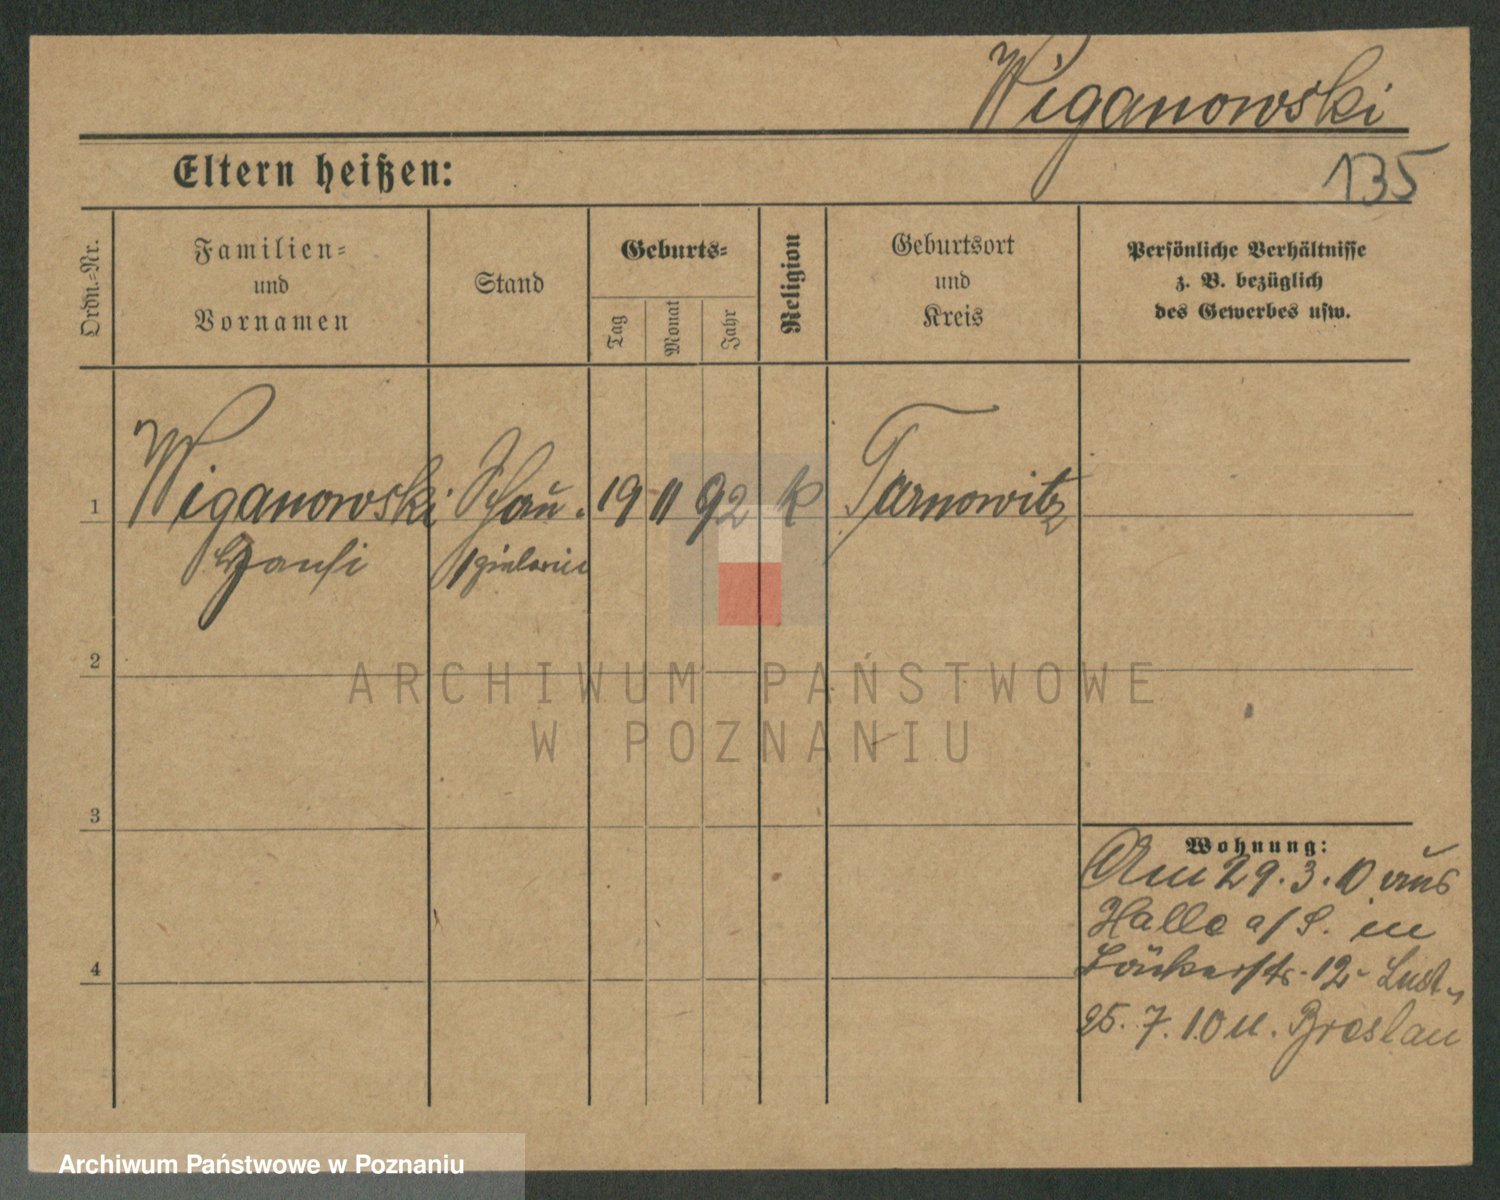 Wiganowski
135
Eltern heißen:
Ordn.-Nr.
Familien-
und
Vornamen
Stand
Geburts-
Tag
Monat
Jahr
Religion
Geburtsort
und
Kreis
Persönliche Verhältnisse
z. B. bezüglich
des Gewerbes usw.
1
Wiganowski Schau-
19 11 92 k Tarnowitz
Hansi spielerin
2
3
4
Wohnung:
Am 29. 3. 10 aus
Halle a/S. in
12
25. 7. 10 n. Breslau
ARCHIWUM PAŃSTWOWE
W POZNANIU
Archiwum Państwowe w Poznaniu